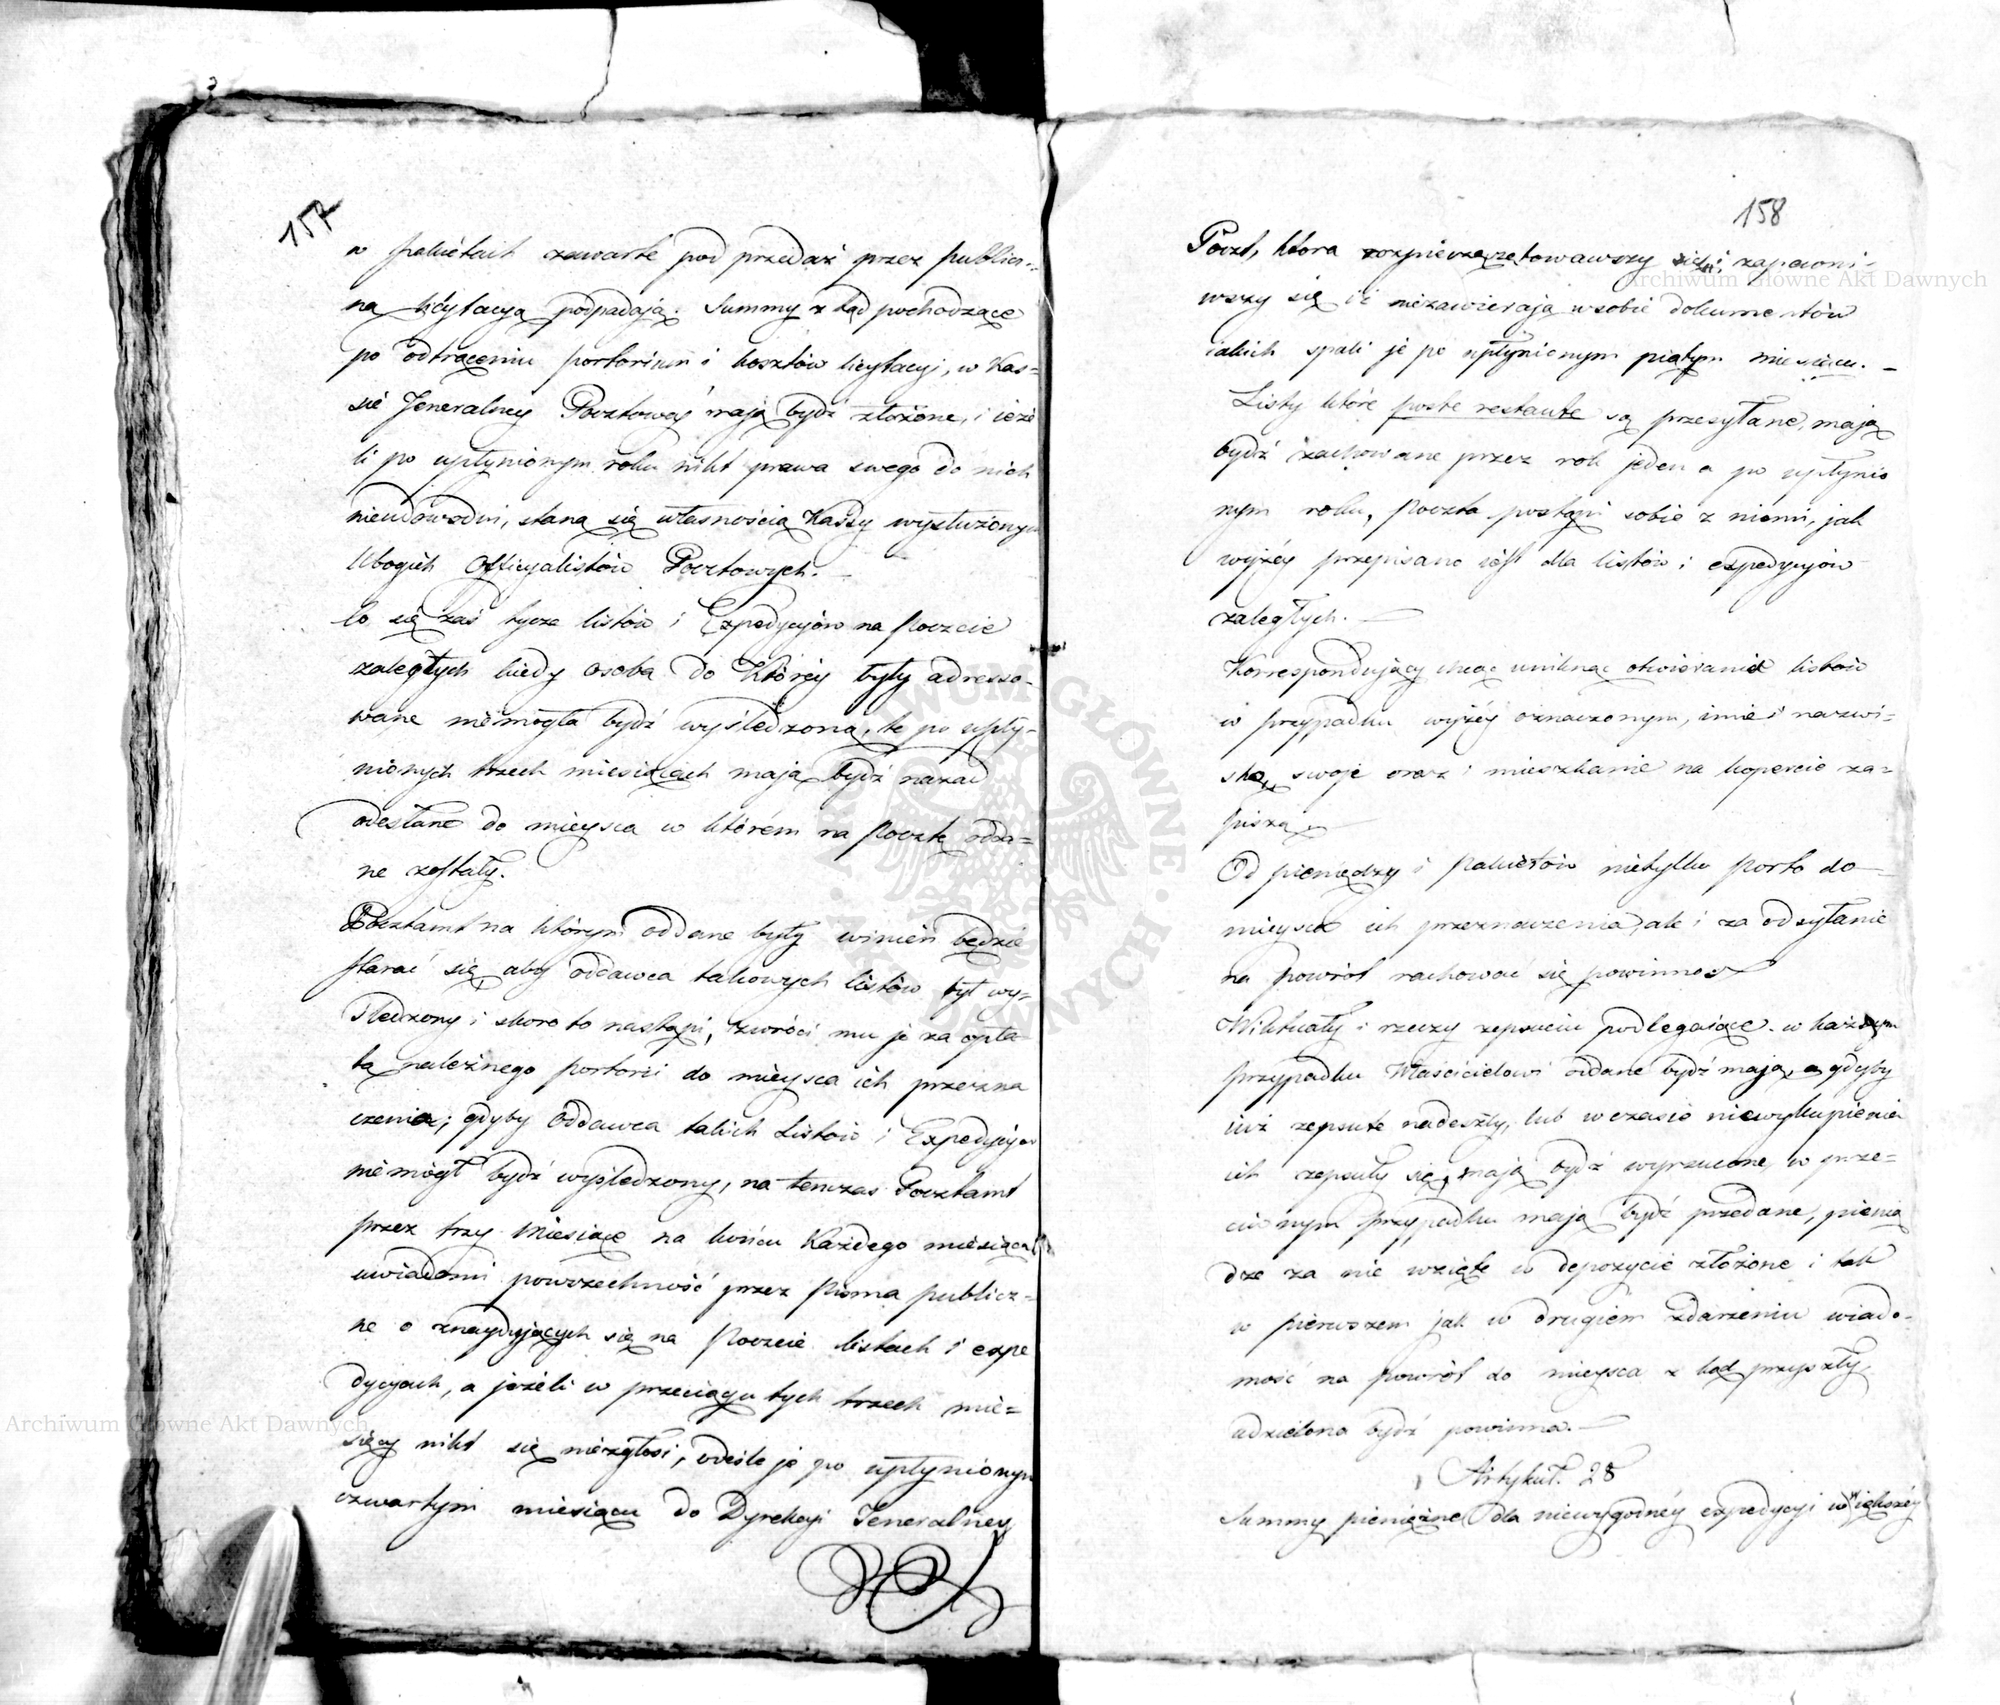 157
w pakiétach zawarte pod przedaż przez publicz=
ną licytacyą podpadają. Summy z tąd pochodzące
po odtrąceniu portorium i kosztów licytacyi, w Kas=
sie Jeneralney Pocztowéy mają bydź złożone, i ieże
li po upłynionym roku nikt prawa swego do nich
nieudowodni, staną się własnością Kassy wysłużonych
Ubogich Officyalistów Pocztowych. —
Co się zaś tycze listów i Expedycyiów na Poczcie
zaległych kiedy osoba do Któréy były adresso-
wane niemogła bydź wyśledzoną, te po upły-
nionych trzech miesiącach mają bydź nazad
odesłane do mieysca w którém na Pocztę odda=
ne zostały.
Pocztamt na którym oddane były winien będzie
starać się, aby oddawca takowych listów był wy-
śledzony i skoro to nastąpi, zwróci mu je za opła
tą należnego portorii do mieysca ich przezna
czenia; gdyby oddawca takich Listów i Expedycyiów
niemógł bydź wyśledzony, na tenczas Pocztamt
przez trzy miesiące na końcu Każdego miesiąca
uwiadomi powszechność przez Pisma publicz=
ne o znaydujących się na Poczcie listach i expe
dycyiach, a jeżeli w przeciągu tych trzech mie=
sięcy nikt się niezgłosi, odeśle je po upłynionym
czwartym miesiącu do Dyrekcyi Jeneralney
158
Poczt, która rozpieczętowawszy je i zapewni-
wszy się iż niezawierają w sobie dokumentów
iakich spali je po upłynionym piątym miesiącu. —
Listy które poste restante są przesyłane, mają
bydź zachowane przez rok jeden a po upłynio
nym roku, Poczta postąpi sobie z niemi, jak
wyżéy przepisano iest dla listów i expedycyiów
zaległych. —
Korrespondujący chcąc uniknąć otwierania listów
w przypadku wyżéy oznaczonym, imie i nazwi=
sko swoje oraz i mieszkanie na kopercie za=
piszą. —
Od pieniędzy i Pakietów nietylko porto do
mieysca ich przeznaczenia, ale i za odsyłanie
na powrót rachować się powinno —
Wiktuały i rzeczy zepsuciu podlegaiące w każdym
przypadku Właścicielowi oddane bydź mają, a gdyby
iuż zepsute nadeszły, lub w czasie niewykupienia
ich zepsuły się, mają bydź wyrzucone, w prze=
ciwnym przypadku mają bydź przedane, pienią
dze za nie wzięte w depozycie złożone i tak
w pierwszem jak w drugiem zdarzeniu wiado-
mość na powrót do mieysca z kąd przyszły,
udzielona bydź powinna. —
Artykuł. 28
Summy pieniężne dla niewygodnéy expedycyi w większéy
Archiwum Główne Akt Dawnych
Archiwum Główne Akt Dawnych
ARCHIWUM GŁÓWNE AKT DAWNYCH